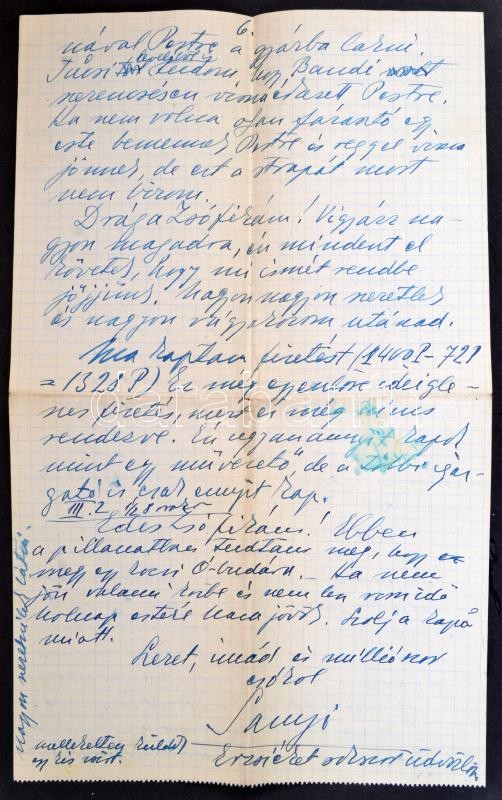 6.
nával Pestre a gyárba
hogy Bandi
szerencsésen visszaérkezett Pestre.
Ha nem volna olyan fárasztó egy
este bemennék Pestre és reggel vissza
jönnék, de ezt a strapát most
nem bírom.
Drága Zsófikám! Vigyázz na-
gyon magadra, én mindent el
követek, hogy mi ismét rendbe
jöjjünk. Nagyon nagyon szeretlek
és nagyon vágyakozom utánad.
Ma kaptam fizetést (1400P - 72P
= 1328 P) Ez még egyenlőre ideigle-
nes fizetés, mert ez még nincs
rendezve. Én ugyanannyit kapok
mint egy művezető, de a többi igaz-
gató is csak ennyit kap.
III. 2. 1/2 8
Édes Zsófikám! Ebben
a pillanatban tudtam meg, hogy
megy egy kocsi Ó-budára. - Ha nem
jön valami közbe és nem lesz
holnap estére haza jövök. Szólj a kapu
miatt.
Szeret, imád és milliószor
csókol
Sanyi
Erzsiéket sokszor üdvözlöm
mellékelten küldök
egy kis
nagyon szeretnélek látni.